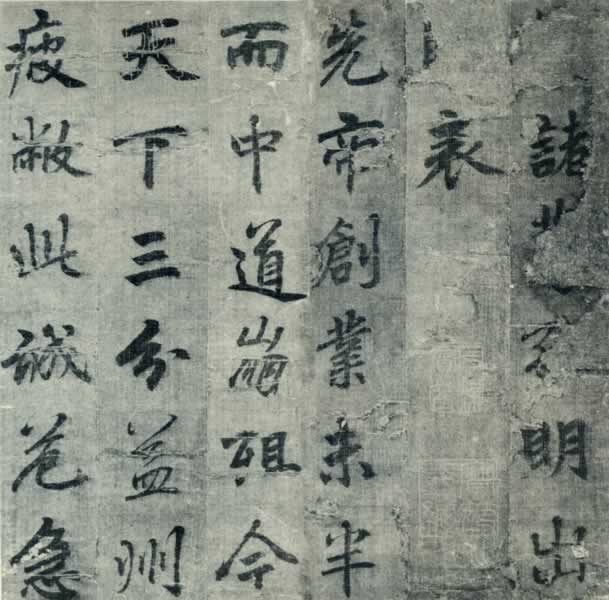 諸明出
表
先帝創業未半
而中道崩殂今
天下三分益州
疲敝此誠危急